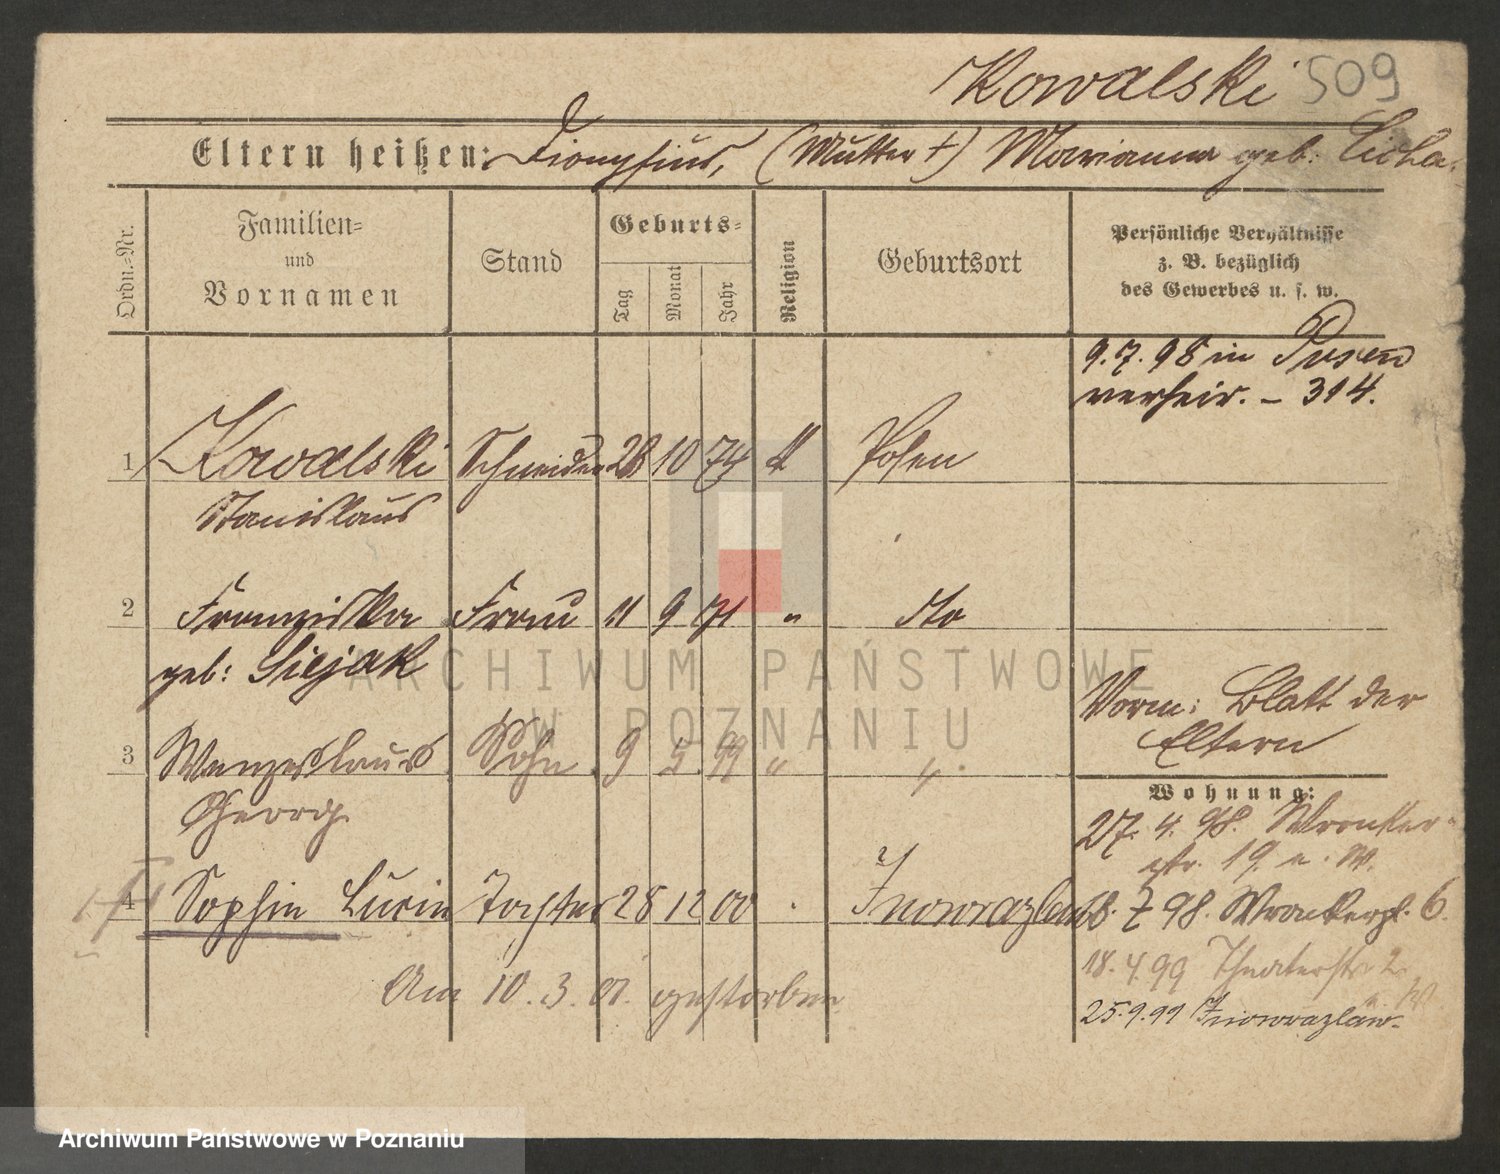 Kowalski 509
Eltern heißen: Dionysius, (Mutter †) Marianna geb: Cicha.
Ordn.-Nr.
Familien-
und
Vornamen
Stand
Geburts-
Tag
Monat
Jahr
Religion
Geburtsort
Persönliche Verhältnisse
z. B. bezüglich
des Gewerbes u. s. w.
9.7.98 in Posen
verheir. – 314.
1 Kowalski Schneider 28 10 74 k Posen
Stanislaus
2 Franziska Frau 11 9 71 " dto
geb: Siejak
Vorm: Blatt der
Eltern
3 Wenzeslaus Sohn 9 5 99 " "
Georg
Wohnung:
27. 4. 98. Wronker-
str. 19
4 Sophie Lucie Tochter 28 12 00 Inowrazlaw
7 98. Wronkerpl. 6.
Am 10. 3. 01. gestorben
18. 4 99 Theaterstr 2
25.9.99 Inowrazlaw.
ARCHIWUM PAŃSTWOWE
W POZNANIU
Archiwum Państwowe w Poznaniu